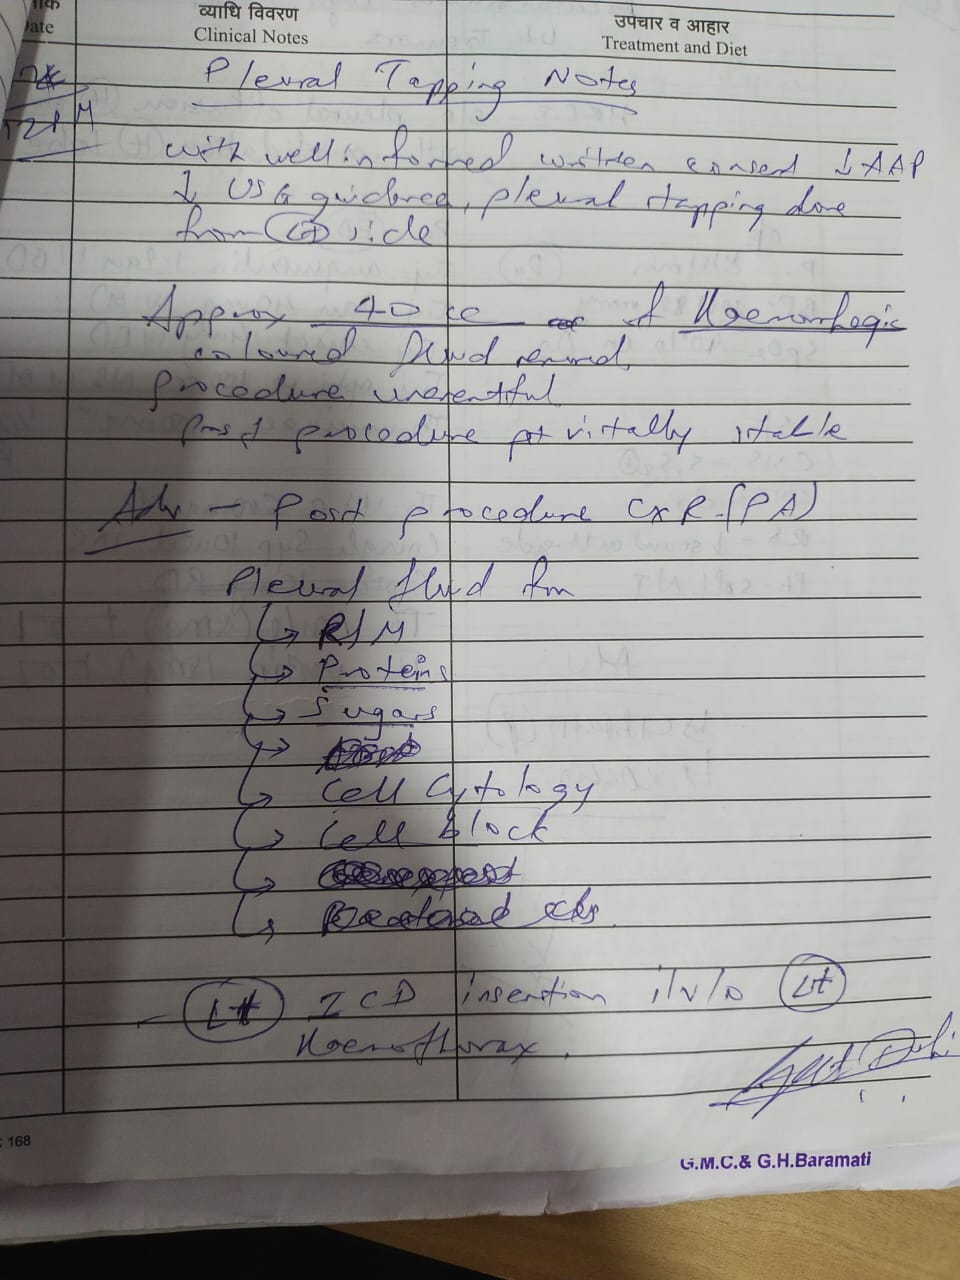 व्याधि विवरण
उपचार व आहार
ate
Clinical Notes
Treatment and Diet
Pleural Tapping Notes
with well informed written consent ↓ AAP
↓ USG guidence, pleural tapping done
from Lt side
Approx 40 cc of Haemorrhagic
coloured fluid removed,
Procedure uneventful
Post procedure pt vitally stable
Adv - Post procedure CXR (PA)
Pleural fluid for
R/M
Proteins
Sugars
Cell Cytology
Cell block
Lt ICD insertion i/v/o Lt
Haemothorax.
168
G.M.C.& G.H.Baramati